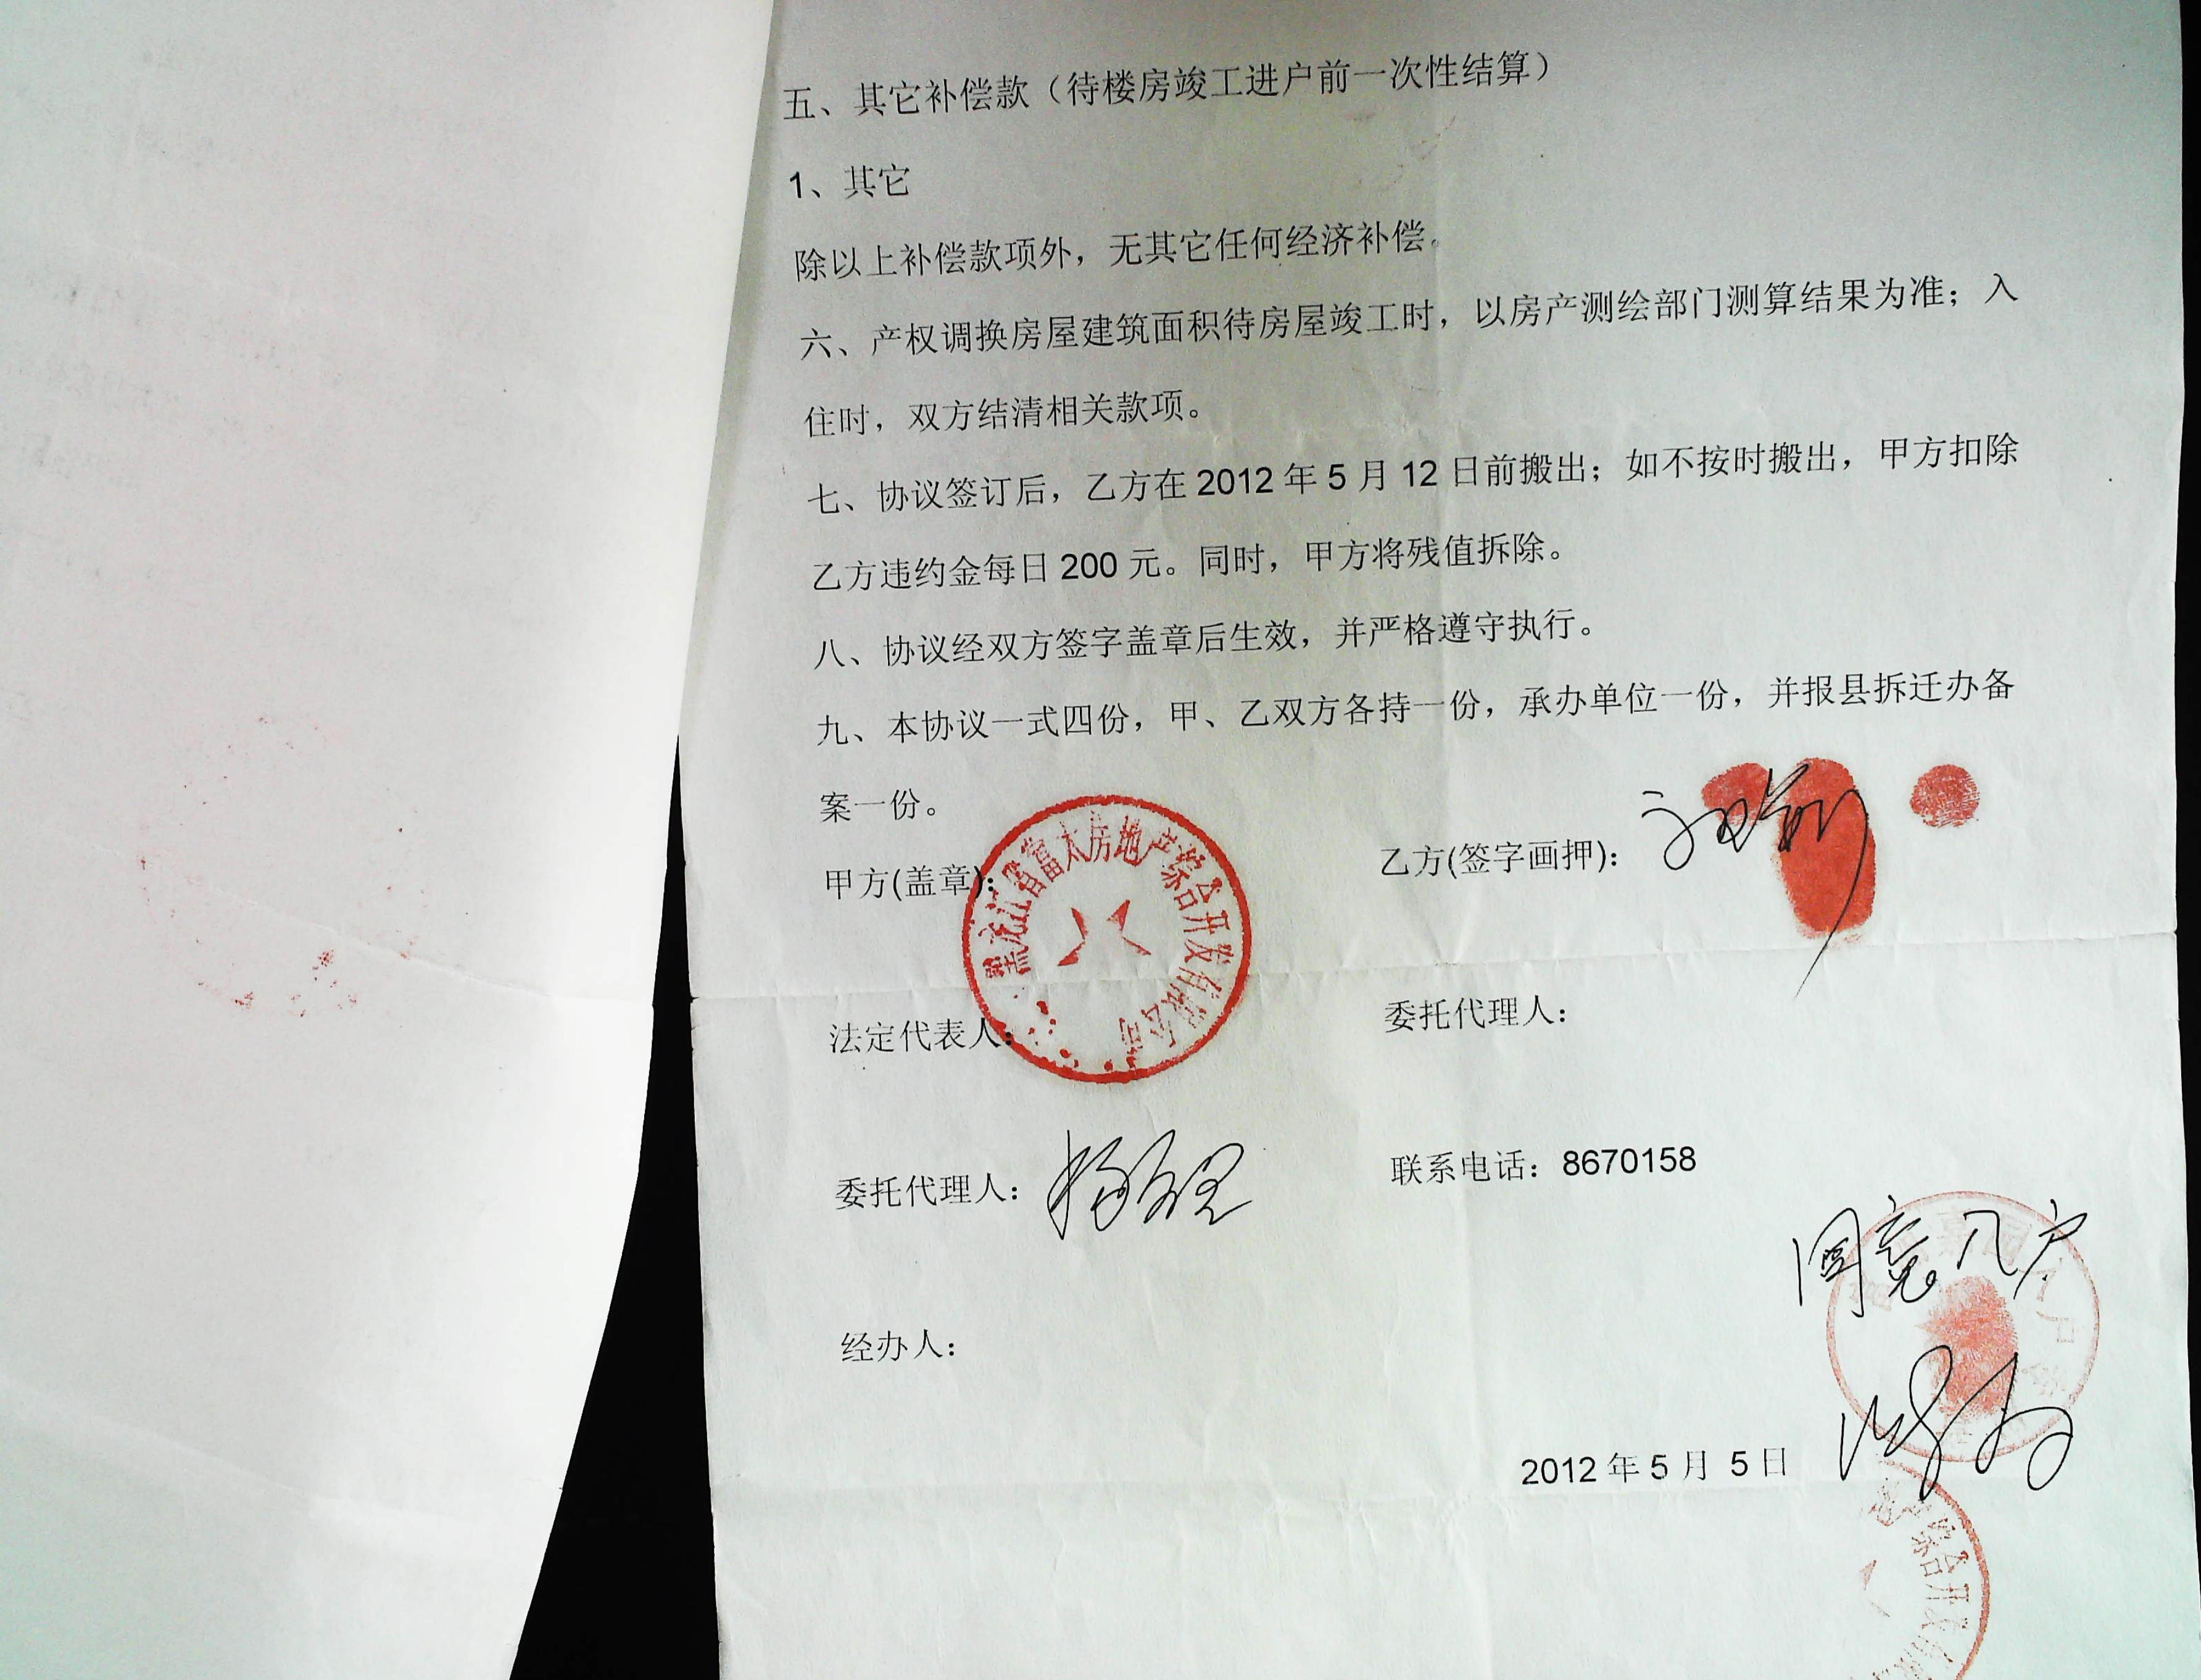 五、其它补偿款（待楼房竣工进户前一次性结算）
1、其它
除以上补偿款项外，无其它任何经济补偿。
六、产权调换房屋建筑面积待房屋竣工时，以房产测绘部门测算结果为准；入
住时，双方结清相关款项。
七、协议签订后，乙方在 2012 年 5 月 12 日前搬出；如不按时搬出，甲方扣除
乙方违约金每日 200 元。同时，甲方将残值拆除。
八、协议经双方签字盖章后生效，并严格遵守执行。
九、本协议一式四份，甲、乙双方各持一份，承办单位一份，并报县拆迁办备
案一份。
甲方(盖章)：
黑龙江省富太房地产综合开发有限公司
乙方(签字画押)：
法定代表人：
委托代理人：
委托代理人：
联系电话：8670158
同意入户
经办人：
2012 年 5 月 5 日
产综合开发有